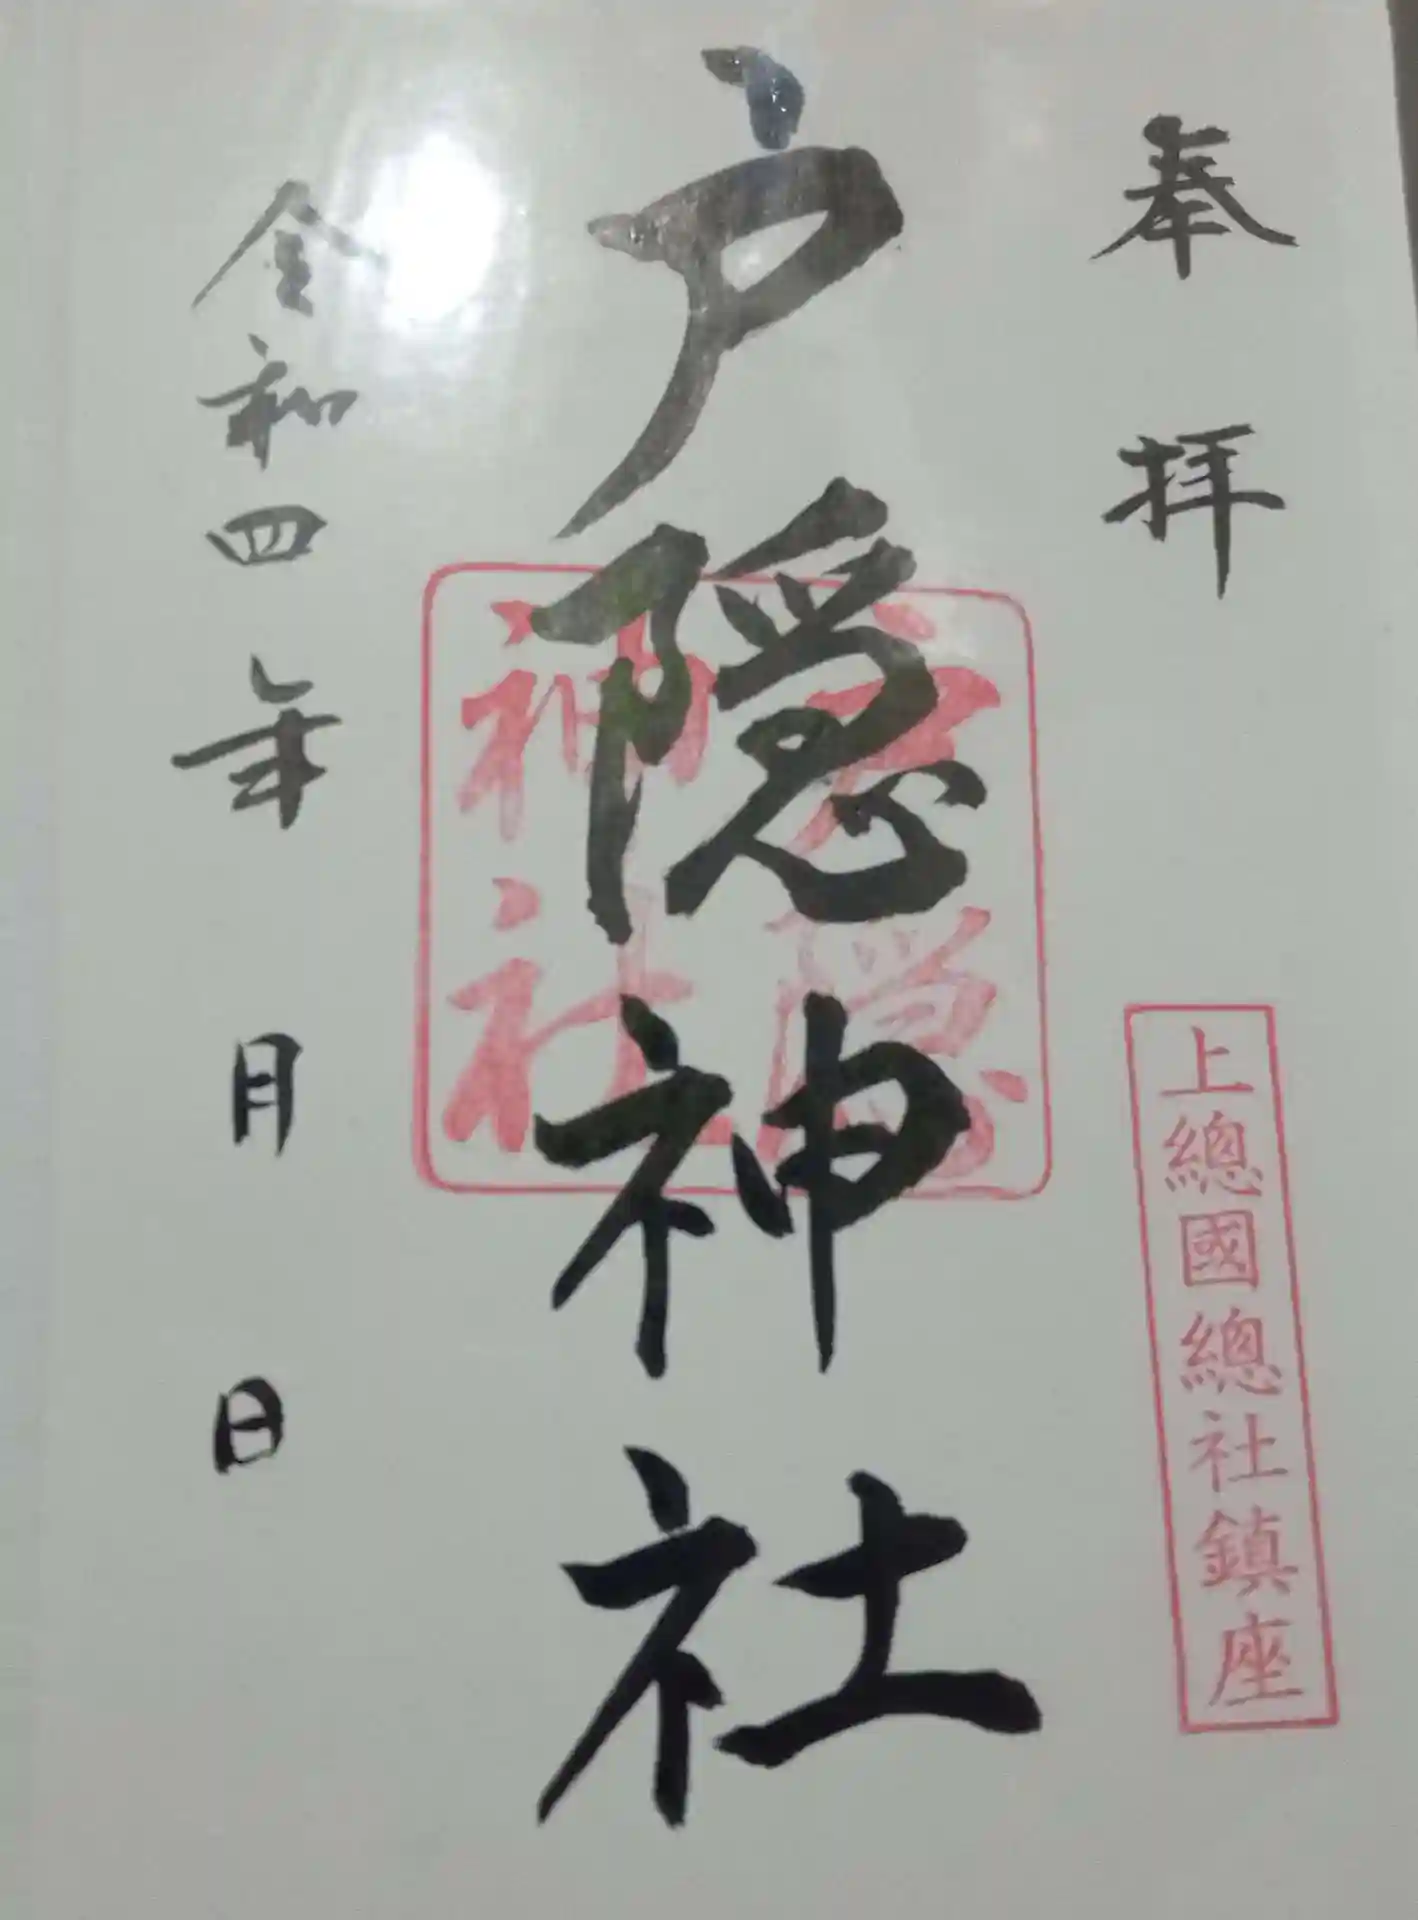 奉拝
上總國總社鎮座
戸隠神社
戸隠
神社
令和四年 月 日